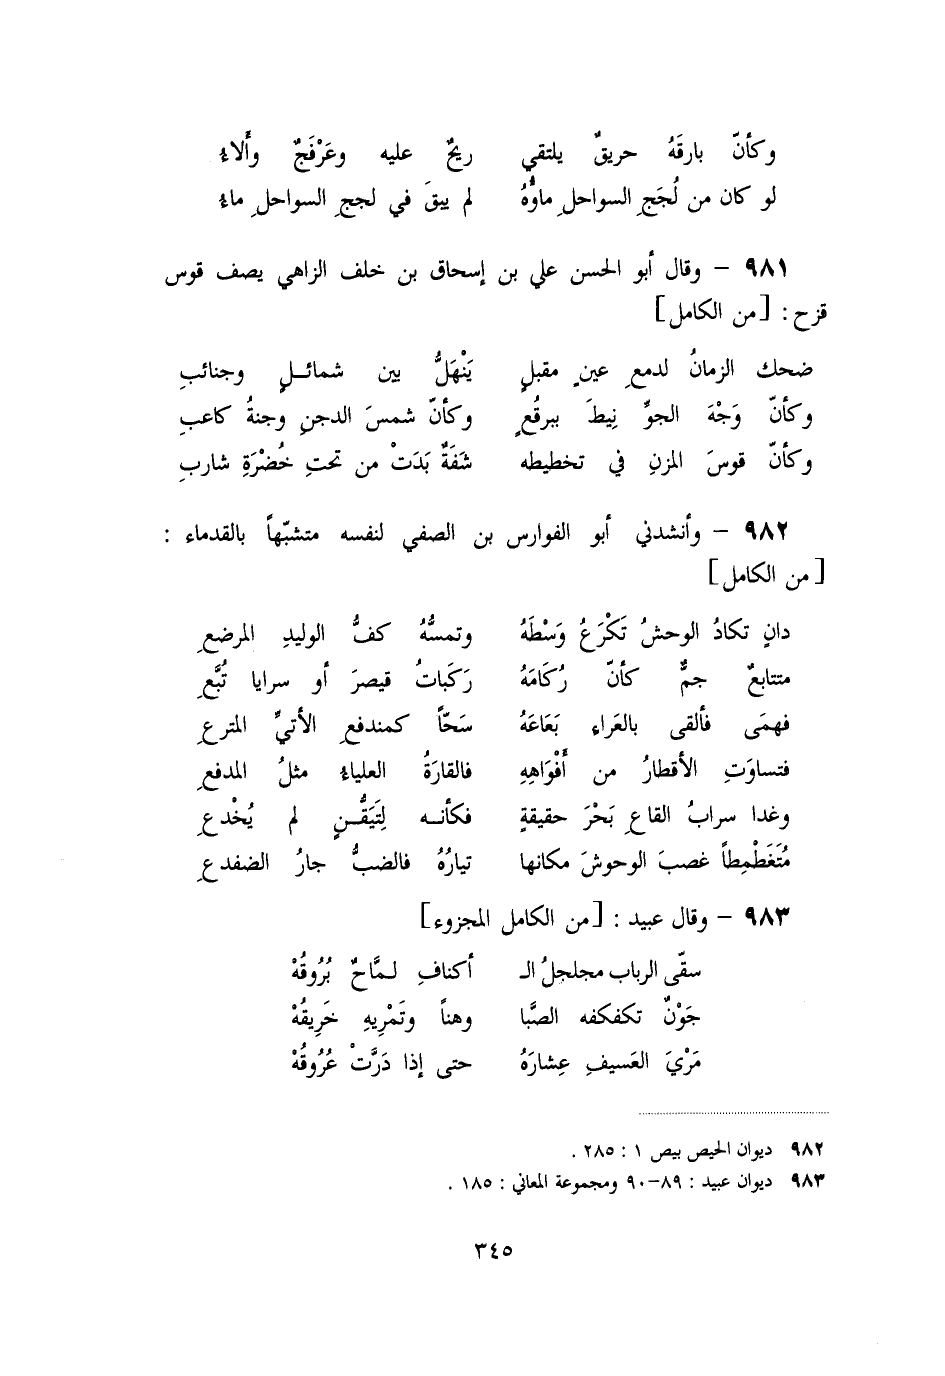 وكأنّ بارقَهُ حريقٌ يلتقي ريحٌ عليه وعَرْفَجٌ وأَلاءُ
لو كان من لُجَجِ السواحلِ ماؤُهُ لم يبقَ في لججِ السواحلِ ماءُ
٩٨١ – وقال أبو الحسن علي بن إسحاق بن خلف الزاهي يصف قوس
قزح : [من الكامل]
ضحك الزمانُ لدمعِ عينٍ مقبلٍ يَنْهَلُّ بين شمائــلٍ وجنائبِ
وكأنّ وَجْهَ الجوِّ نِيطَ ببرقُعٍ وكأنّ شمسَ الدجنِ وجنةُ كاعبِ
وكأنّ قوسَ المزنِ في تخطيطه شَفَةٌ بَدَتْ من تحتِ خُضْرَةِ شاربِ
٩٨٢ – وأنشدني أبو الفوارس بن الصفي لنفسه متشبّهاً بالقدماء :
[من الكامل]
دانٍ تكادُ الوحشُ تَكْرَعُ وَسْطَهُ وتمسُّهُ كفُّ الوليدِ المرضعِ
متتابعٌ جمٌّ كأنّ رُكَامَهُ رَكَباتُ قيصرَ أو سرايا تُبَّعِ
فهمَى فألقى بالعَراءِ بَعَاعَهُ سَحّاً كمندفعِ الأتيِّ المترعِ
فتساوَتِ الأقطارُ من أَفْوَاهِهِ فالقارَةُ العلياءُ مثلُ المدفعِ
وغدا سرابُ القاعِ بَحْرَ حقيقةٍ فكأنــه لِتَيَقُّــنٍ لم يُخْدعِ
مُتَغَطْمِطاً غصبَ الوحوشَ مكانها تيارُهُ فالضبُّ جارُ الضفدعِ
٩٨٣ – وقال عبيد : [من الكامل المجزوء]
سقّى الرباب مجلجلُ الـ أكنافِ لمَّاحٌ بُرُوقُهْ
جَوْنٌ تكفكفه الصَّبا وهناً وتَمْرِيهِ خَرِيقُهْ
مَرْيَ العَسيفِ عِشارَهُ حتى إذا دَرَّتْ عُرُوقُهْ
٩٨٢ ديوان الحيص بيص ١ : ٢٨٥ .
٩٨٣ ديوان عبيد : ٨٩–٩٠ ومجموعة المعاني : ١٨٥ .
٣٤٥